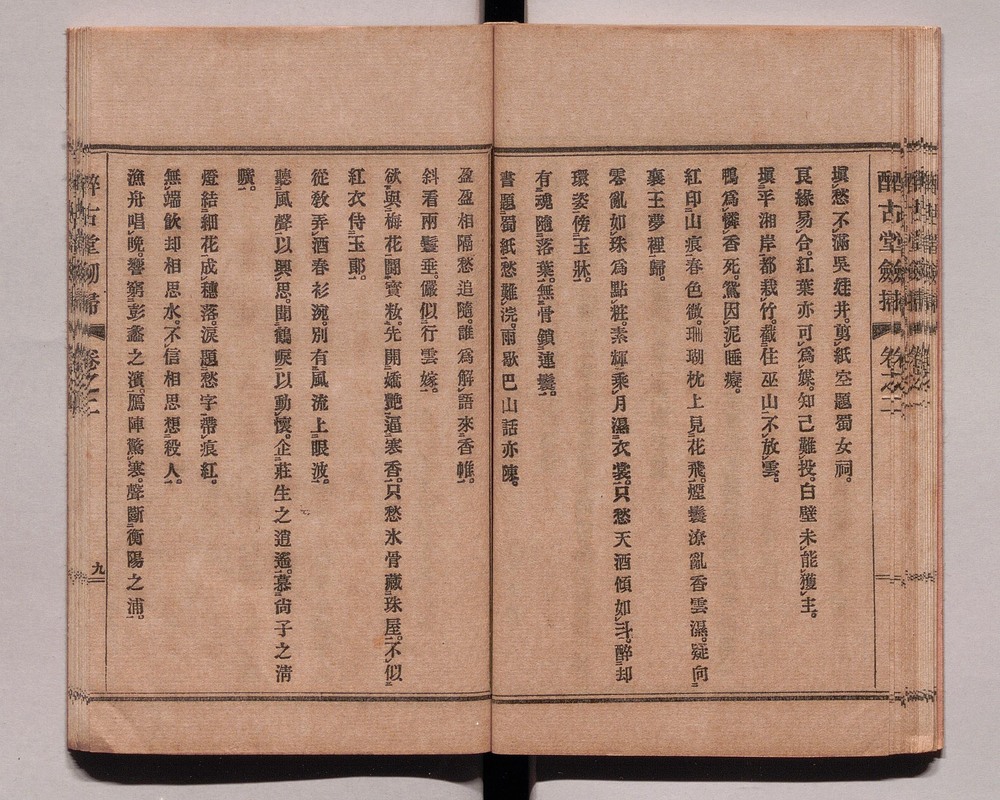 醉古堂劍掃 卷之二
塡愁不滿吳娃井。剪紙空題蜀女祠。
良緣易合。紅葉亦可爲媒。知己難投。白璧未能獲主。
塡平湘岸都栽竹。截住巫山不放雲。
鴨爲憐香死。鴛因泥睡癡。
紅印山痕春色微。珊瑚枕上見花飛。煙鬟潦亂香雲濕。疑向
襄王夢裡歸。
零亂如珠爲點粧。素輝乘月濕衣裳。只愁天酒傾如斗。醉却
環姿傍玉牀。
有魂隨落葉。無骨鎖連鬟。
書題蜀紙愁難浣。雨歇巴山話亦陳。
盈盈相隔愁追隨。誰爲解語來香帷。
斜看兩鬟垂。儼似行雲嫁。
欲與梅花鬪寶妝。先開嬌艷逼寒香。只愁氷骨藏珠屋。不似
紅衣侍玉郞。
從敎弄酒春衫涴。別有風流上眼波。
聽風聲以興思。聞鶴唳以動懷。企莊生之逍遙。慕尙子之淸
曠。
燈結細花成穗落。淚題愁字帶痕紅。
無端飮却相思水。不信相思想殺人。
漁舟唱晚。響窮彭蠡之濱。鴈陣驚寒。聲斷衡陽之浦。
醉古堂劍掃 卷之二 九